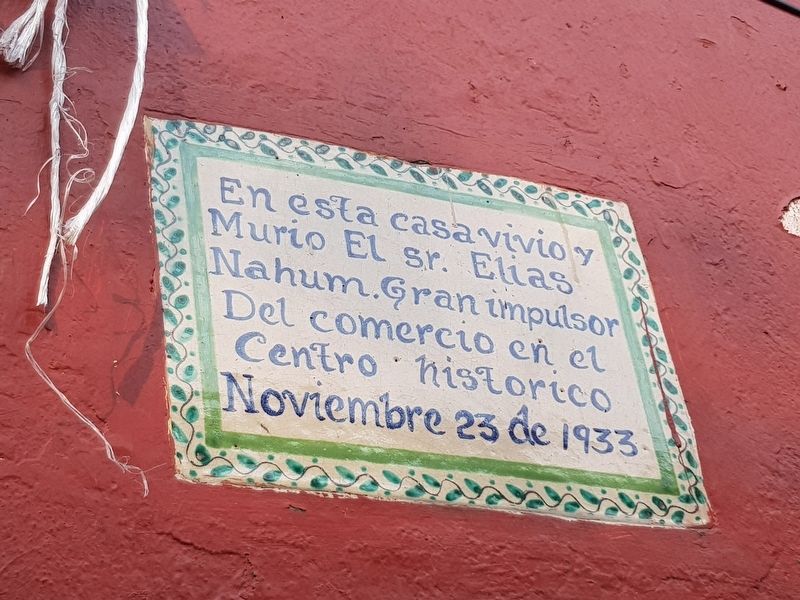 En esta casa vivio y
Murio El sr. Elias
Nahum. Gran impulsor
Del comercio en el
Centro historico
Noviembre 23 de 1933.